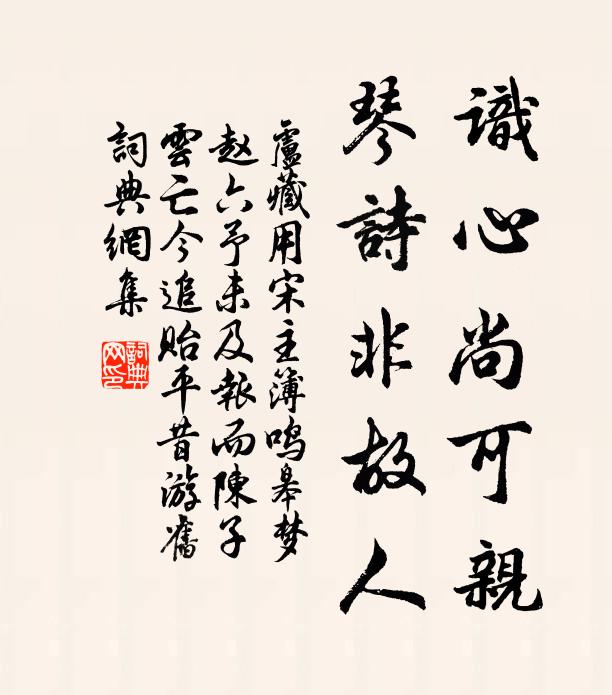 識心尚可親
琴詩非故人
盧藏用宋主簿鳴皋梦
赵六予未及報而陳子
雲亡今追貽平昔游舊
詞典網集
詞典网印